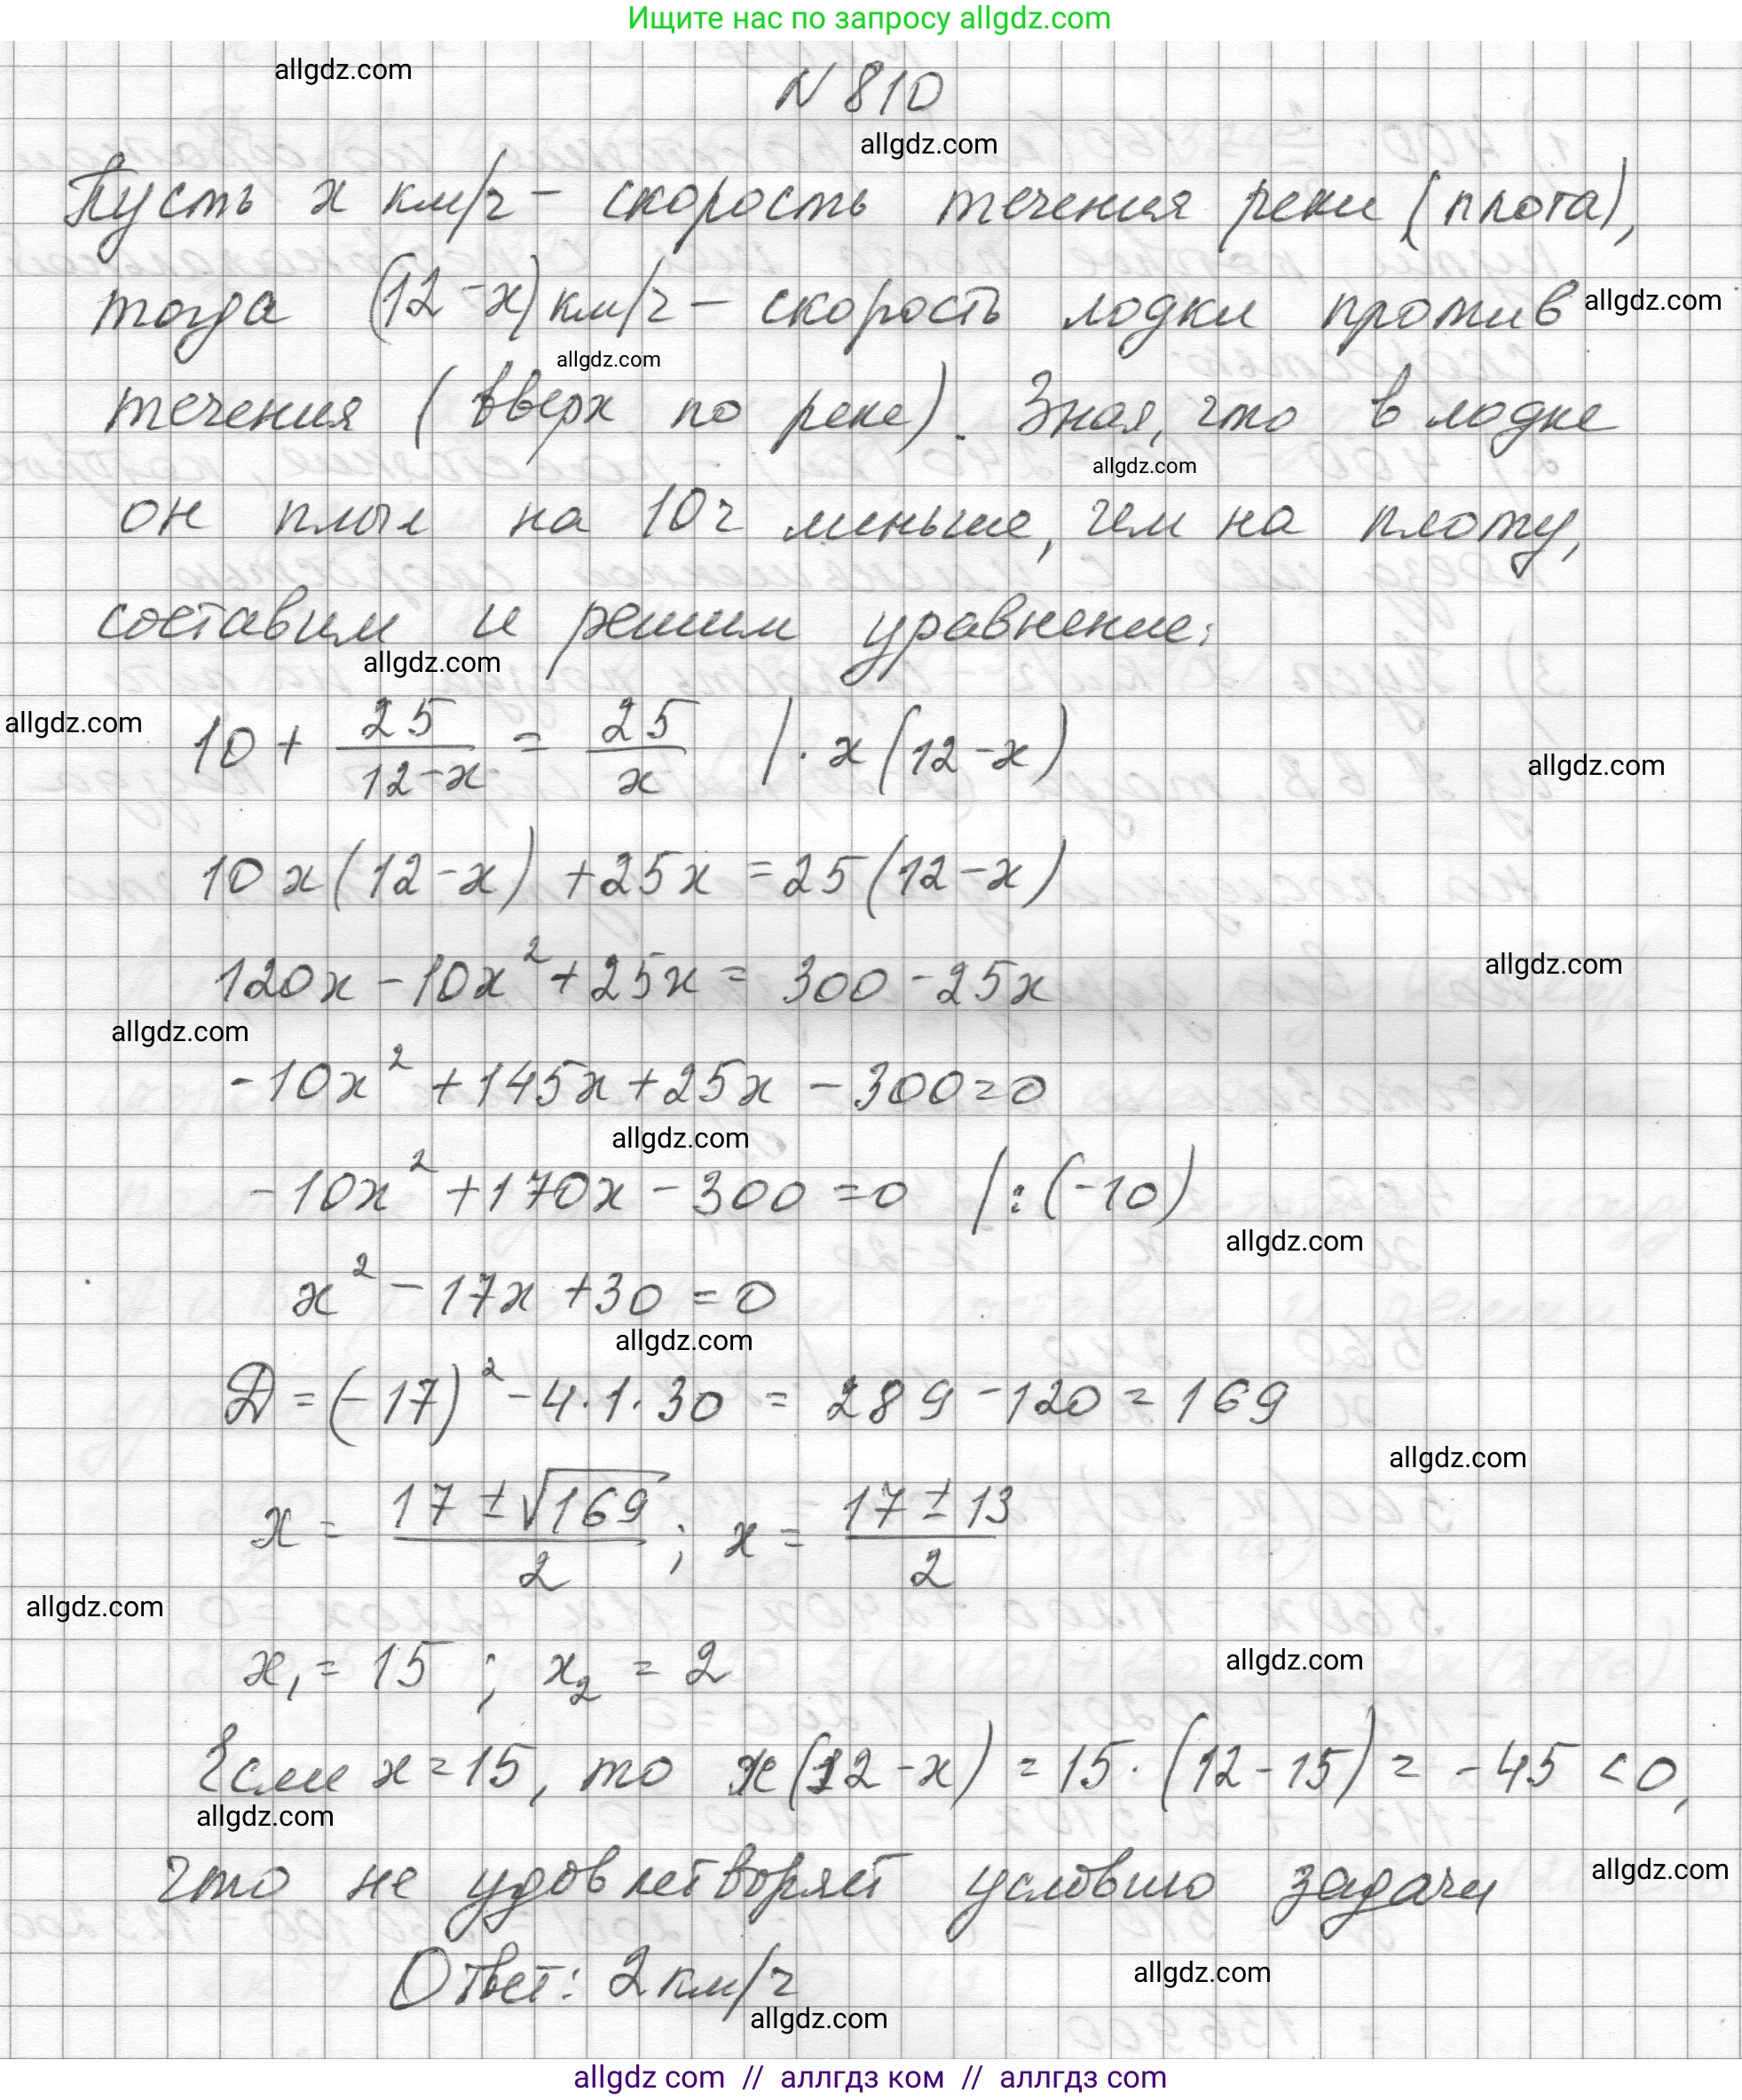 Ищите нас по запросу allgdz.com
allgdz.com
N 810
allgdz.com
Пусть x км/ч – скорость течения реки (плота),
тогда (12-x) км/ч – скорость лодки против
allgdz.com
allgdz.com
течения (вверх по реке). Зная, что в лодке
allgdz.com
он плыл на 10 ч меньше, чем на плоту,
составим и решим уравнение:
allgdz.com
allgdz.com
10 + 25/(12-x) = 25/x | · x(12-x)
allgdz.com
10x(12-x) + 25x = 25(12-x)
120x - 10x² + 25x = 300 - 25x
allgdz.com
allgdz.com
-10x² + 145x + 25x - 300 = 0
allgdz.com
-10x² + 170x - 300 = 0 | : (-10)
allgdz.com
x² - 17x + 30 = 0
allgdz.com
D = (-17)² - 4·1·30 = 289 - 120 = 169
allgdz.com
x = (17 ± √169)/2 ; x = (17 ± 13)/2
allgdz.com
x₁ = 15 ; x₂ = 2
allgdz.com
Если x = 15, то x(12-x) = 15·(12-15) = -45 < 0,
allgdz.com
что не удовлетворяет условию задачи
allgdz.com
Ответ: 2 км/ч
allgdz.com
allgdz.com
allgdz com // аллгдз ком // аллгдз com